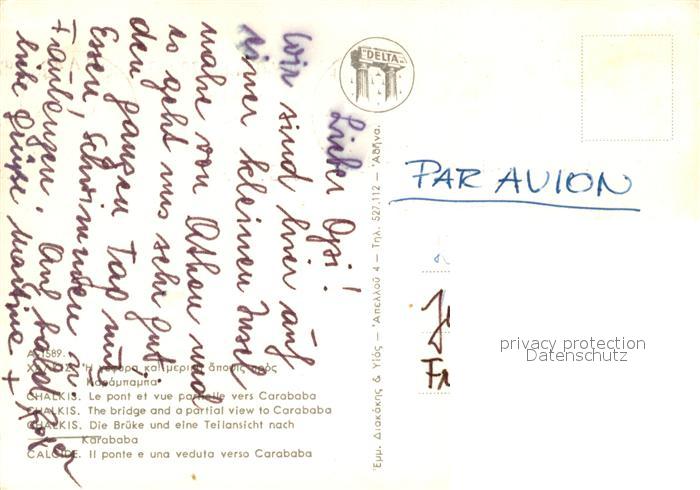 Lieber Opi!
Wir sind hier auf
einer kleinen Insel
nahe von Athen und
es geht uns sehr gut.
den ganzen Tag nur
Essen, schwimmen u
Faulenzen. Auf bald
liebe Grüße Martine +
Roger
DELTA
PAR AVION
privacy protection
Datenschutz
Fr
Έμμ. Διακάκης & Υἱός – Ἀπελλοῦ 4 – Τηλ. 527.112 – Ἀθῆνα.
1589.
Ἡ γέφυρα καὶ μερικὴ ἄποψις πρὸς
Καράμπαμπα
CHALKIS. Le pont et vue partielle vers Carababa
CHALKIS. The bridge and a partial view to Carababa
CHALKIS. Die Brüke und eine Teilansicht nach
Karababa
CALCIDE. Il ponte e una veduta verso Carababa